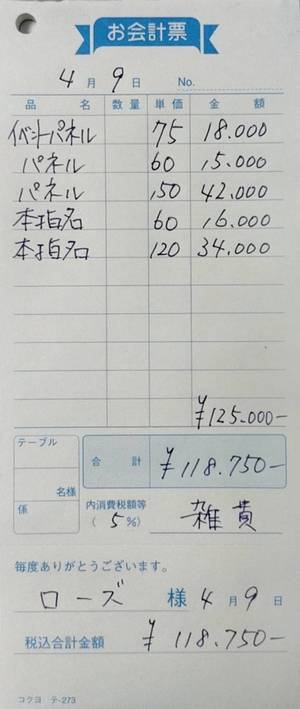 お会計票
4月9日 No.
品名 数量 単価 金額
イベントパネル 75 18.000
パネル 60 15.000
パネル 150 42.000
本指名 60 16.000
本指名 120 34.000
¥125.000-
テーブル
名様
係
合計 ¥118.750-
内消費税額等
(5%) 雑費
毎度ありがとうございます。
ローズ 様 4月9日
税込合計金額 ¥118.750-
コクヨ テ-273